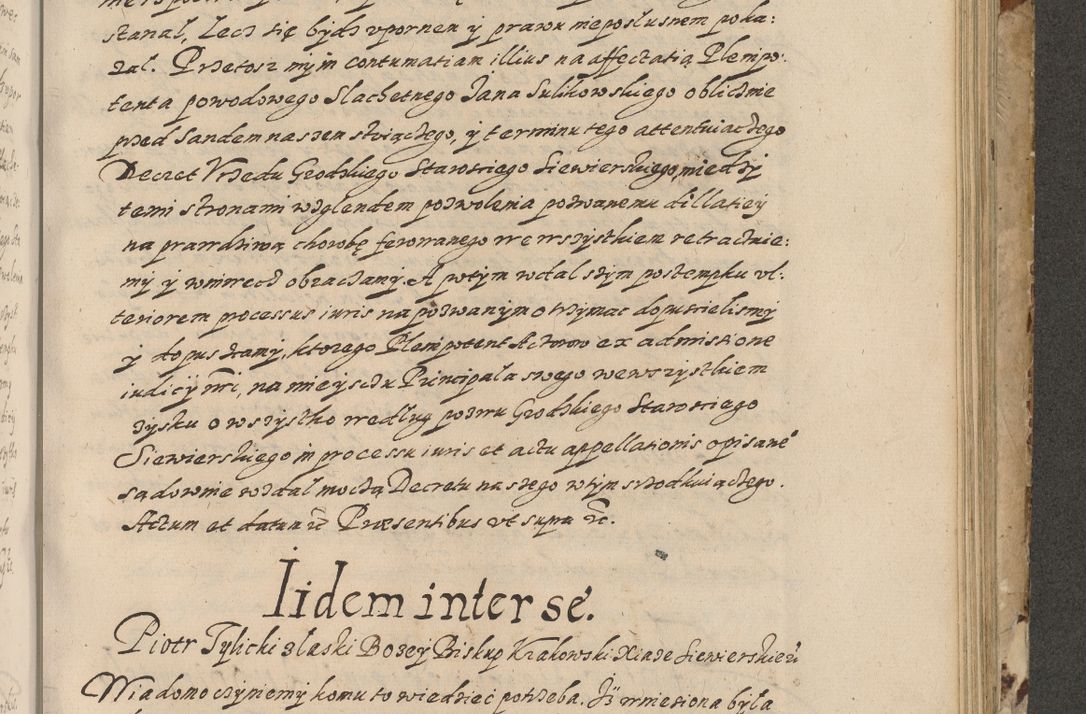 stanął, lecz się bydź upornem y prawu nieposłusnem poka:
zał. Przetosz my in contumatiam illius na affectatią Plenipo:
tenta powodowego Slachetnego Jana Sulikowskiego oblicznie
przed Sandem naszem stoiączego, y terminu tego attentuiączego
Decret Vrzędu Grodskiego Starosciego Siewierskiego, miedzy
temi stronami wzglendem pozwolenia pozwanemu dillatiey
na prawdziwą chorobę ferowanego we wszystkiem retractuie:
my y wniwecz obraczamy. A potym w dalszym postempku vl:
teriorem processus iuris na pozwanym otrzymac dopuscielismy
y dopusczamy, ktorego Plenipotent Actorow ex admissione
iudicij nri, na mieyscu Principala swego wewszystkiem
zysku o wszystko według pozwu Grodskiego Starosciego
Siewierskiego in processu iuris et actu appellationis opisane°
sądownie wzdał moczą Decretu naszego w tym srzodkuiączego.
Actum et datum &c Præsentibus vt supra &c.
Iidem inter se.
Piotr Tylicki z łaski Bozey Biskup Krakowski Xiąze Siewierskie
Wiadomo czyniemy komu to wiedziec potrzeba. Iż wniesiona była